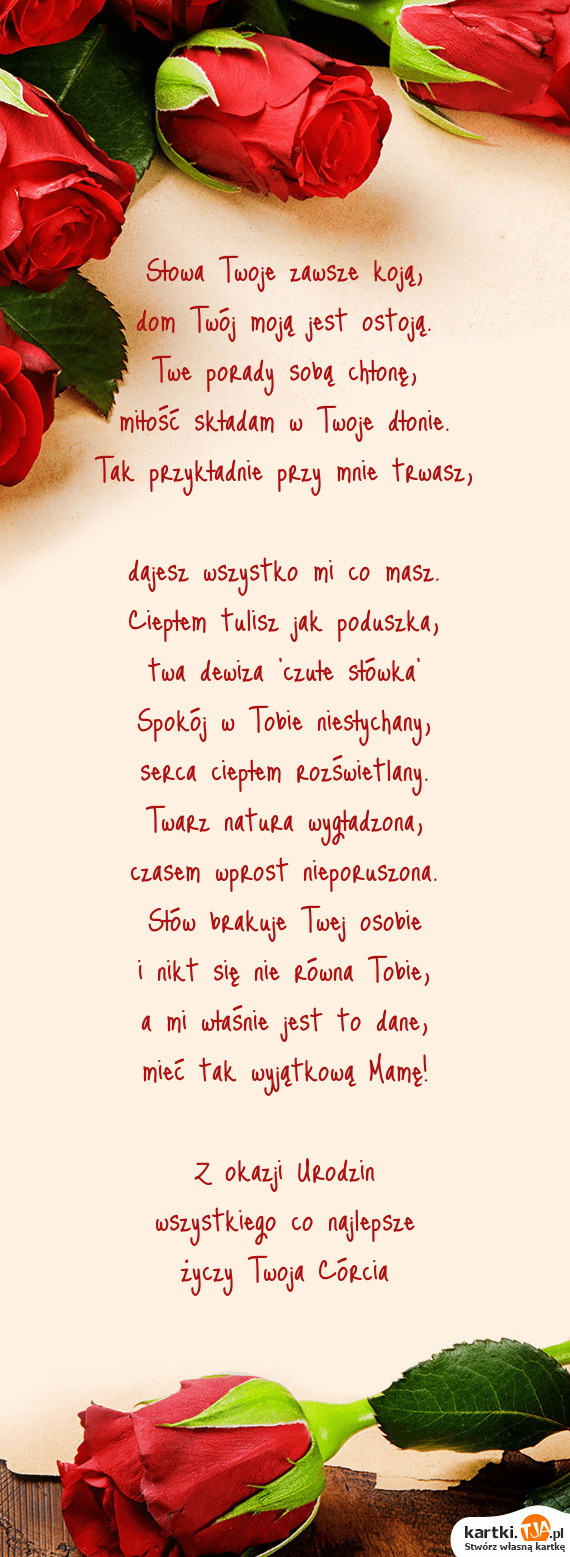 Słowa Twoje zawsze koją,
dom Twój moją jest ostoją.
Twe porady sobą chłonę,
miłość składam w Twoje dłonie.
Tak przykładnie przy mnie trwasz,
dajesz wszystko mi co masz.
Ciepłem tulisz jak poduszka,
twa dewiza "czułe słówka"
Spokój w Tobie niesłychany,
serca ciepłem rozświetlany.
Twarz natura wygładzona,
czasem wprost nieporuszona.
Słów brakuje Twej osobie
i nikt się nie równa Tobie,
a mi właśnie jest to dane,
mieć tak wyjątkową Mamę!
Z okazji Urodzin
wszystkiego co najlepsze
życzy Twoja Córcia
kartki.TJA.pl
Stwórz własną kartkę